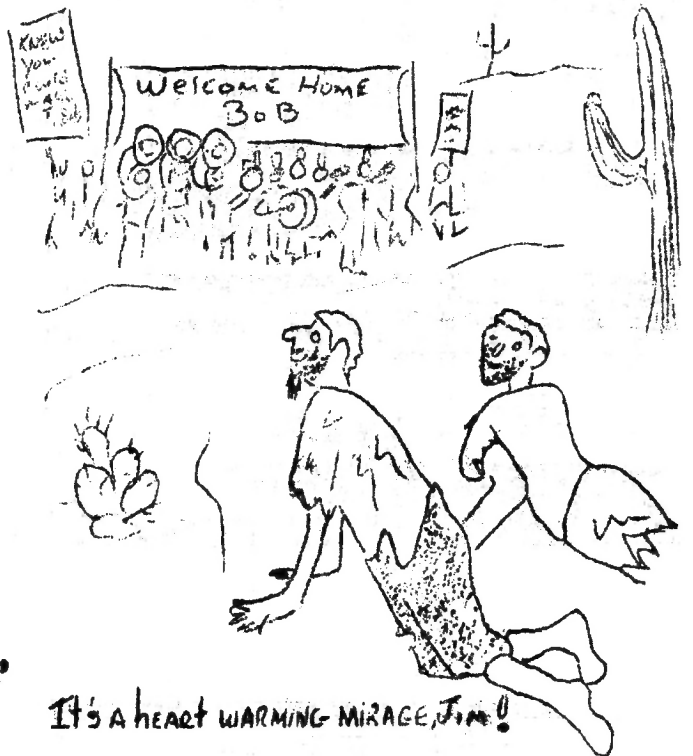 KNEW
You
Welcome Home
BoB
It's A heart WARMING MIRAGE, Jim!